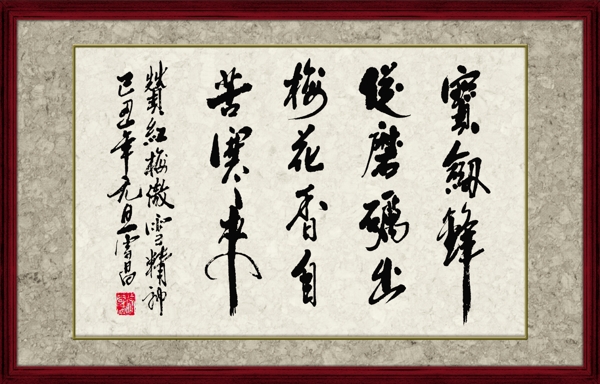 寶劍鋒
從磨礪出
梅花香自
苦寒來
贊紅梅傲雪精神
己丑年元旦雲昌